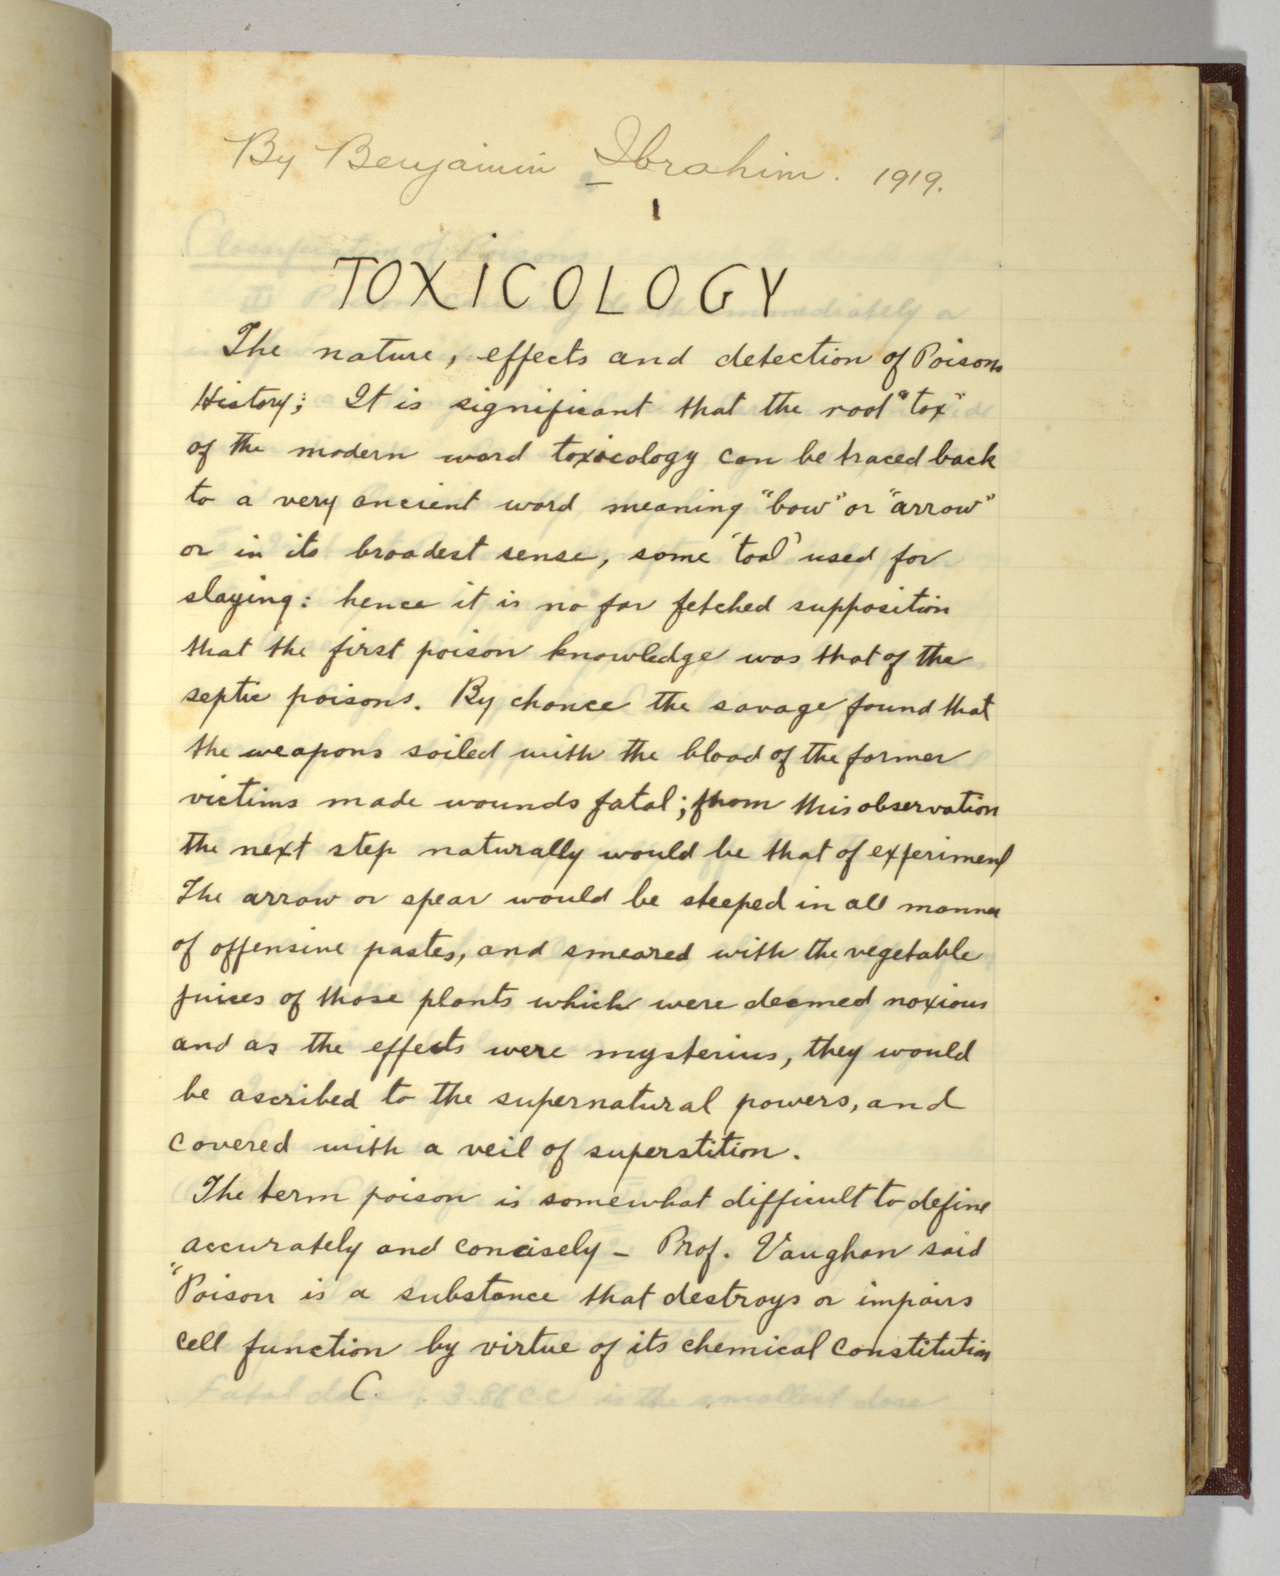 By Benjamin Ibrahim. 1919.
1
TOXICOLOGY
The nature, effects and detection of Poisons
History; It is significant that the root "tox"
of the modern word toxicology can be traced back
to a very ancient word meaning "bow" or "arrow"
or in its broadest sense, some 'tool' used for
slaying: hence it is no far fetched supposition
that the first poison knowledge was that of the
septic poisons. By chance the savage found that
the weapons soiled with the blood of the former
victims made wounds fatal; from this observation
the next step naturally would be that of experiment
The arrow or spear would be steeped in all manner
of offensive pastes, and smeared with the vegetable
juices of those plants which were deemed noxious
and as the effects were mysterius, they would
be ascribed to the supernatural powers, and
covered with a veil of superstition.
The term poison is somewhat difficult to define
accurately and concisely – Prof. Vaughan said
"Poison is a substance that destroys or impairs
cell function by virtue of its chemical constitution
C.